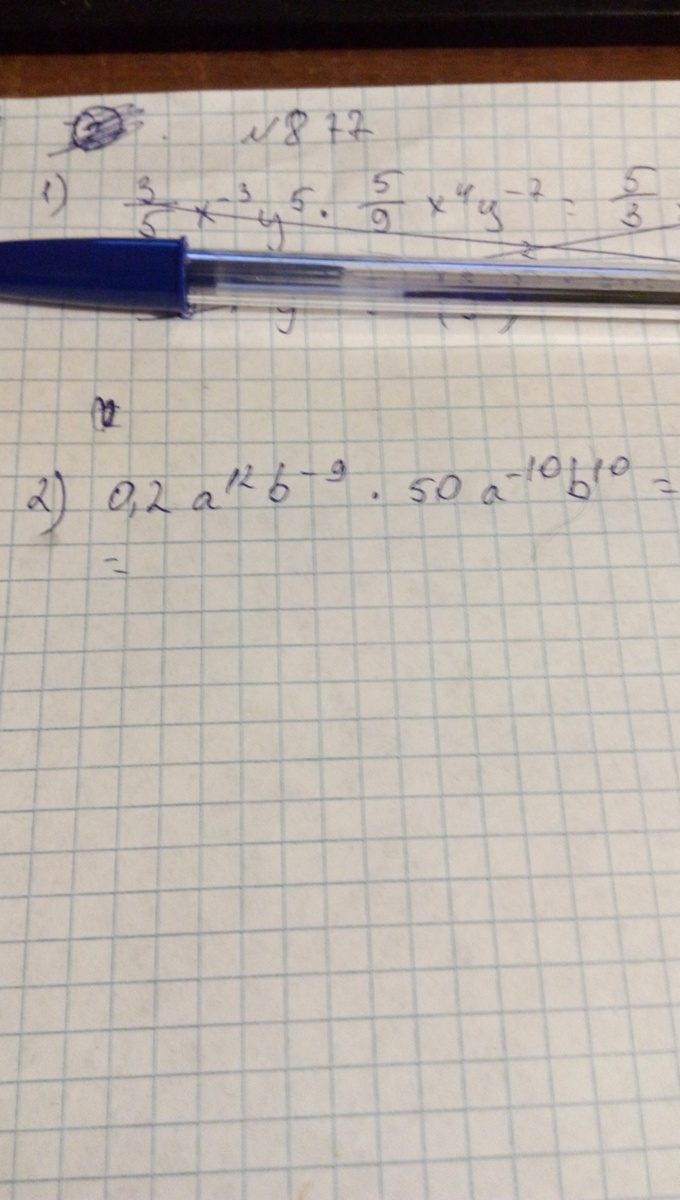 №877
1) 3/5 x⁻³y⁵ · 5/9 x⁴y⁻⁷ = 5/3
2) 0,2 a¹²b⁻⁹ · 50 a⁻¹⁰b¹⁰ =
=